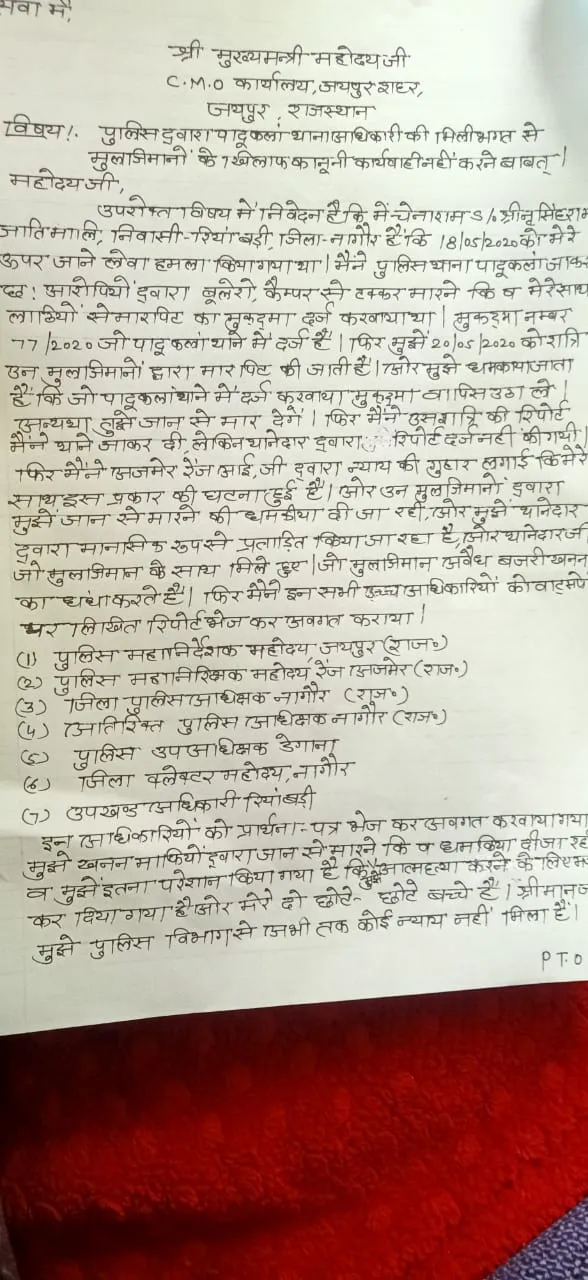 सेवा में,
श्री मुख्यमन्त्री महोदय जी
C.M.O कार्यालय, जयपुर शहर,
जयपुर, राजस्थान
विषय:. पुलिस द्वारा पादूकलां थानाअधिकारी की मिलीभगत से
मुलाजिमानों के खिलाफ कानूनी कार्यवाही नहीं करने बाबत् ।
महोदय जी,
उपरोक्त विषय में निवेदन है कि में चेनाराम S/o श्रीनृसिंहराम
जाति मालि, निवासी-रियां बड़ी, जिला-नागौर हैं कि 18/05/2020 को मेरे
ऊपर जाने लेवा हमला किया गया था । मैंने पुलिस थाना पादूकलां जाकर
छः आरोपियों द्वारा बूलेरो, कैम्पर से टक्कर मारने कि व मेरे साथ
लाठियों से मारपिट का मुकदमा दर्ज करवाया था । मुकदमा नम्बर
77/2020 जो पादूकलां थाने में दर्ज है । फिर मुझे 20/05/2020 को रात्रि
उन मुलाजिमानों द्वारा मारपिट की जाती है । और मुझे धमकाया जाता
है कि जो पादूकलां थाने में दर्ज करवाया मुकदमा वापिस उठा ले ।
अन्यथा तुझे जान से मार देगें । फिर मैंने उस रात्रि की रिपोर्ट
मैंने थाने जाकर दी, लेकिन थानेदार द्वारा रिपोर्ट दर्ज नही की गयी ।
फिर मैंने अजमेर रेंज आई.जी द्वारा न्याय की गुहार लगाई कि मेरे
साथ इस प्रकार की घटना हुई है । और उन मुलजिमानों द्वारा
मुझे जान से मारने की धमकीया दी जा रही, और मुझे थानेदार
द्वारा मानसिक रूप से प्रताड़ित किया जा रहा है, और थानेदार जी
जो मुलाजिमान के साथ मिले हुए । जो मुलजिमान अवैध बजरी खनन
का धंधा करते हैं । फिर मैंने इन सभी उच्च अधिकारियों को वाट्सऐप
पर लिखित रिपोर्ट भेज कर अवगत कराया ।
(1) पुलिस महानिर्देशक महोदय, जयपुर (राज०)
(2) पुलिस महानिरिक्षक महोदय रेंज अजमेर (राज०)
(3) जिला पुलिस अधिक्षक नागौर (राज०)
(4) अतिरिक्त पुलिस अधिक्षक नागौर (राज०)
(5) पुलिस उपअधिक्षक डेगाना
(6) जिला क्लेक्टर महोदय, नागौर
(7) उपखण्ड अधिकारी रियांबड़ी
इन अधिकारियों को प्रार्थना-पत्र भेज कर अवगत करवाया गया
मुझे खनन माफियों द्वारा जान से मारने कि व धमकिया दी जा रही
व मुझे इतना परेशान किया गया है कि मुझे आत्महत्या करने के लिए
कर दिया गया है और मेरे दो छोटे-छोटे बच्चे हैं । श्रीमान जी
मुझे पुलिस विभाग से अभी तक कोई न्याय नहीं मिला है ।
P T.O